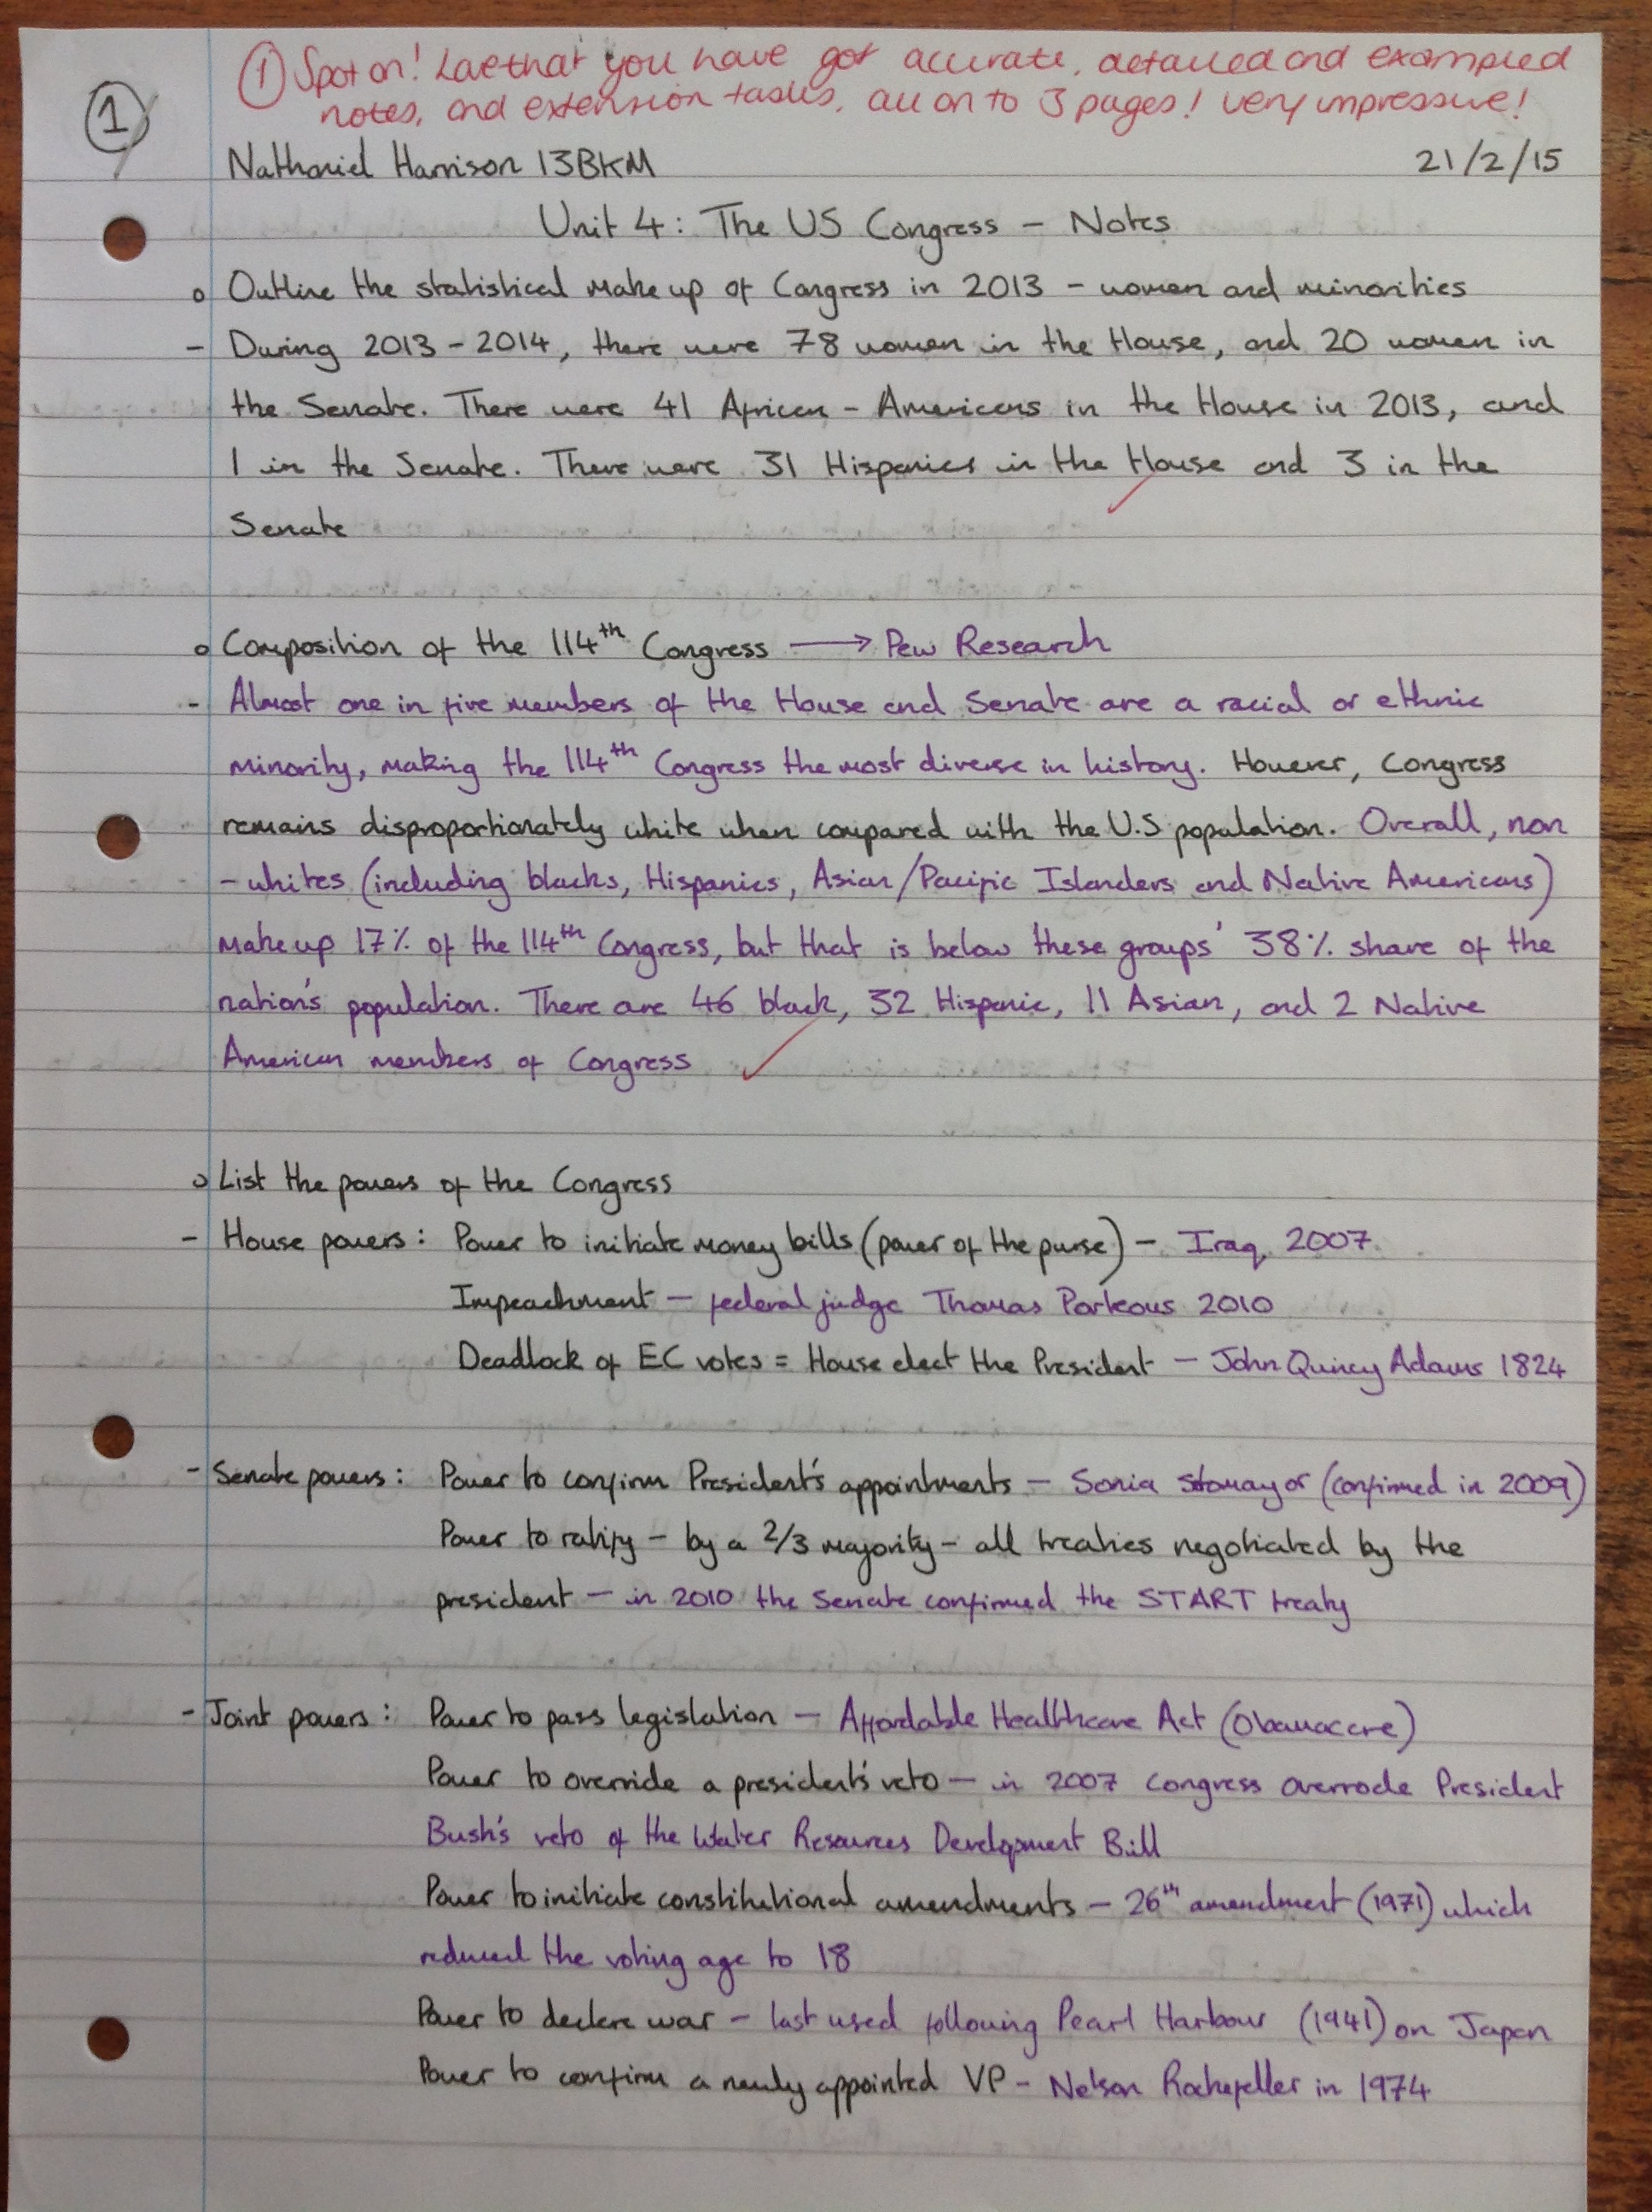 ① Spot on! Love that you have got accurate, detailed and exampled
notes, and extension tasks, all on to 3 pages! Very impressive!
1
Nathaniel Harrison 13BKM 21/2/15
Unit 4: The US Congress – Notes
o Outline the statistical make up of Congress in 2013 – women and minorities
– During 2013 – 2014, there were 78 women in the House, and 20 women in
the Senate. There were 41 African – Americans in the House in 2013, and
1 in the Senate. There were 31 Hispanics in the House and 3 in the
Senate
o Composition of the 114th Congress → Pew Research
- Almost one in five members of the House and Senate are a racial or ethnic
minority, making the 114th Congress the most diverse in history. However, Congress
remains disproportionately white when compared with the U.S population. Overall, non
-whites (including blacks, Hispanics, Asian/Pacific Islanders and Native Americans)
make up 17% of the 114th Congress, but that is below these groups' 38% share of the
nation's population. There are 46 black, 32 Hispanic, 11 Asian, and 2 Native
American members of Congress
o List the powers of the Congress
- House powers: Power to initiate money bills (power of the purse) – Iraq, 2007
Impeachment – federal judge Thomas Porteous 2010
Deadlock of EC votes = House elect the President – John Quincy Adams 1824
- Senate powers: Power to confirm President's appointments – Sonia Stomayor (confirmed in 2009)
Power to ratify – by a 2/3 majority – all treaties negotiated by the
president – in 2010 the Senate confirmed the START treaty
- Joint powers: Power to pass legislation – Affordable Healthcare Act (Obamacare)
Power to override a president's veto – in 2007 Congress overrode President
Bush's veto of the Water Resources Development Bill
Power to initiate constitutional amendments – 26th amendment (1971) which
reduced the voting age to 18
Power to declare war – last used following Pearl Harbour (1941) on Japan
Power to confirm a newly appointed VP – Nelson Rockefeller in 1974